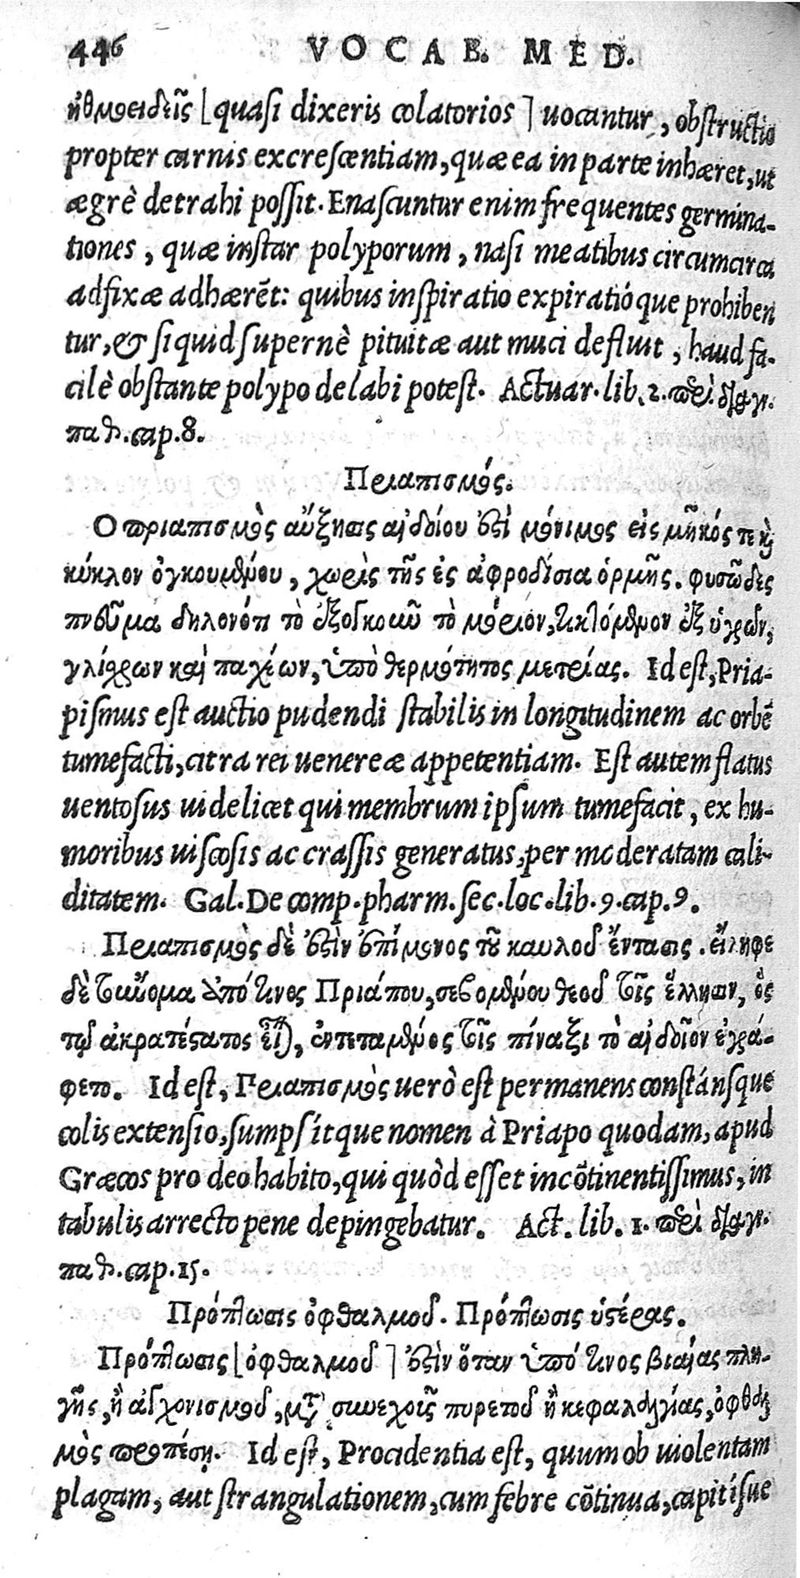 446 VOCAB. MED.
ἠθμοειδεῖς [quasi dixeris colatorios] uocantur, obstructio
propter carnis excrescentiam, quæ ea in parte inhæret, ut
ægrè detrahi possit. Enascuntur enim frequentes germina-
tiones, quæ instar polyporum, nasi meatibus circumcirca
adfixæ adhærẽt: quibus inspiratio expiratióque prohiben
tur, & si quid supernè pituitæ aut muci defluit, haud fa-
cilè obstante polypo delabi potest. Actuar. lib. 2. περὶ διαγν.
παθ. cap. 8.
Πριαπισμός.
Ο πριαπισμὸς αὔξησις αἰδοίου ἐστὶ μόνιμος εἰς μῆκός τε καὶ
κύκλον ὀγκουμένου, χωρὶς τῆς ἐς ἀφροδίσια ὁρμῆς. φυσῶδες
πνεῦμα δηλονότι τὸ ἐξογκοῦν τὸ μόριον, τικτόμενον ἐξ ὑγρῶν,
γλίσχρων καὶ παχέων, ὑπὸ θερμότητος μετρίας. Id est, Pria-
pismus est auctio pudendi stabilis in longitudinem ac orbẽ
tumefacti, citra rei uenereæ appetentiam. Est autem flatus
uentosus uidelicet qui membrum ipsum tumefacit, ex hu-
moribus uiscosis ac crassis generatus, per moderatam cali-
ditatem. Gal. De comp. pharm. sec. loc. lib. 9. cap. 9.
Πριαπισμὸς δὲ ἐστὶν ἐπίμονος τοῦ καυλοῦ ἔντασις. εἴληφε
δὲ τοὔνομα ἀπό τινος Πριάπου, σεβομένου θεοῦ τοῖς ἕλλησιν, ὃς
τῷ ἀκρατέστατος εἶναι, ἐντεταμένος τοῖς πίναξι τὸ αἰδοῖον ἐγρά-
φετο. Id est, Πριαπισμὸς uerò est permanens constánsque
colis extensio, sumpsítque nomen à Priapo quodam, apud
Græcos pro deo habito, qui quòd esset incõtinentissimus, in
tabulis arrecto pene depingebatur. Act. lib. 1. περὶ διαγν.
παθ. cap. 15.
Πρόπτωσις ὀφθαλμοῦ. Πρόπτωσις ὑστέρας.
Πρόπτωσις [ὀφθαλμοῦ] ἐστὶν ὅταν ὑπό τινος βιαίας πλη-
γῆς, ἢ ἀγχονισμοῦ, μετὰ συνεχοῖς πυρετοῦ ἢ κεφαλαλγίας, ὀφθαλ
μὸς προπέσῃ. Id est, Procidentia est, quum ob uiolentam
plagam, aut strangulationem, cum febre cõtinua, capitísue